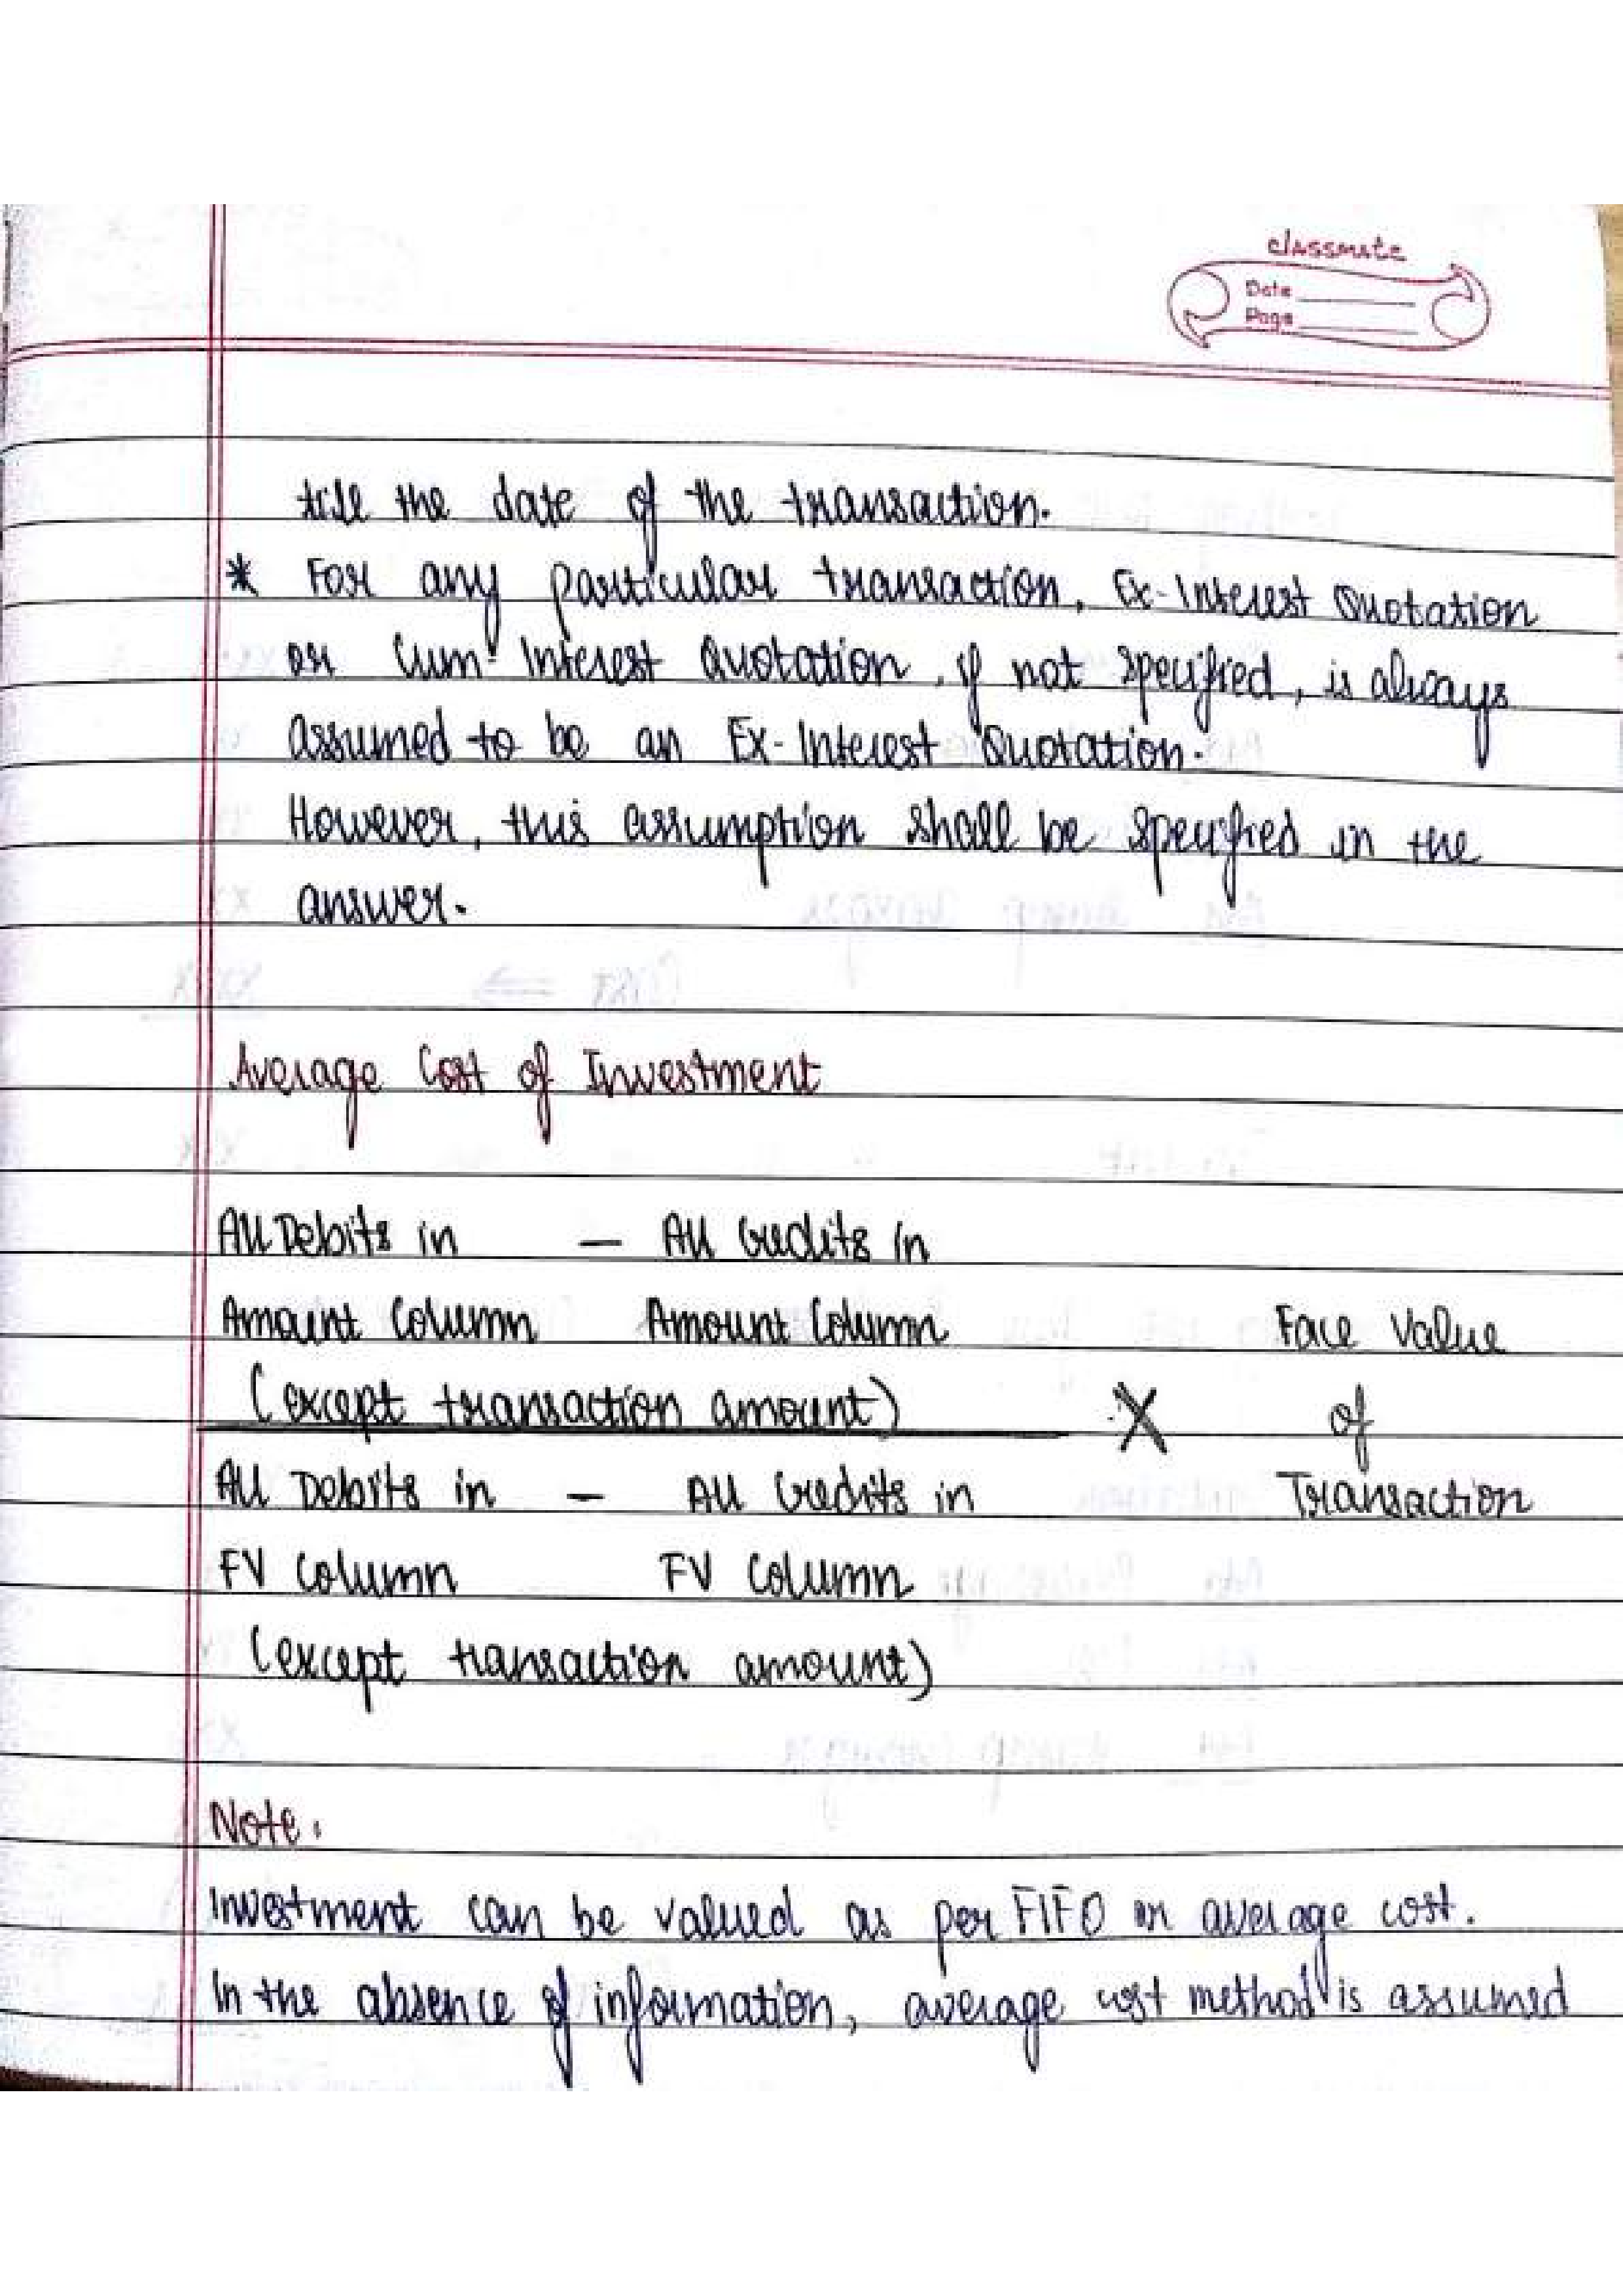 classmate
Date
Page
till the date of the transaction.
* For any particular transaction, Ex-Interest Quotation
or Cum-Interest Quotation, if not specified, is always
assumed to be an Ex-Interest Quotation.
However, this assumption shall be specified in the
answer.
Average Cost of Investment
All Debits in — All Credits in
Amount Column Amount Column Face Value
(except transaction amount) X of
All Debits in — All Credits in Transaction
FV Column FV Column
(except transaction amount)
Note:
Investment can be valued as per FIFO or average cost.
In the absence of information, average cost method is assumed